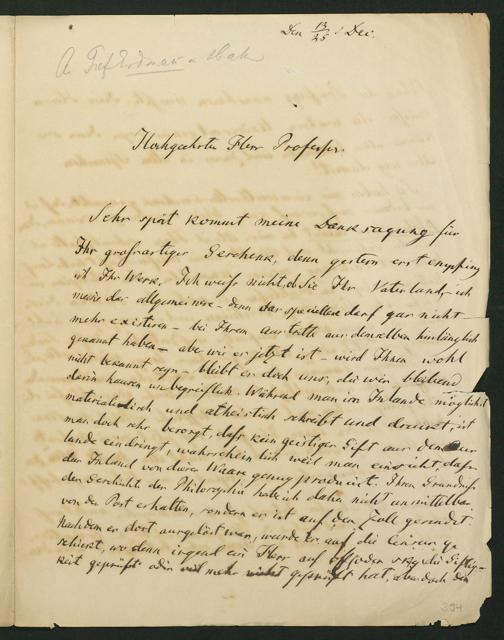 Den 13/25 Dec.
A. Prof Erdmann
Hochgeehrter Herr Professor.
Sehr spät kommt meine Danksagung für
Ihr großartiges Geschenk, denn gestern erst empfing
ich Ihr Werk. Ich weiß nicht, ob Sie Ihr Vaterland, ich
meine das allgemeinere – denn das speciellere darf gar nicht
mehr existiren – bei Ihrem Austritt aus demselben hinlänglich
gekannt haben – aber wie es jetzt ist – wird Ihnen wohl
nicht bekannt seyn – bleibt es doch uns, die wir bleibend
darin hausen unbegreiflich. Während man im Inlande möglichst
materialistisch und atheistisch schreibt und druckt, ist
man doch sehr besorgt, daß kein geistiges Gift aus dem
lande eindringt, wahrscheinlich weil man einsieht, daß
das Inland von dieser Waare genug producirt. Ihren Grundriß
der Geschichte der Philosophie habe ich daher nicht unmittelbar
von der Post erhalten, sondern er ist auf den Zoll gesandt
Nachdem er dort ausgelöst war, wurde er auf die Censur ge
schickt, wo denn irgend ein Herr auf die Giftig-
keit geprüft oder viel mehr nicht geprüft hat, aber doch den
394